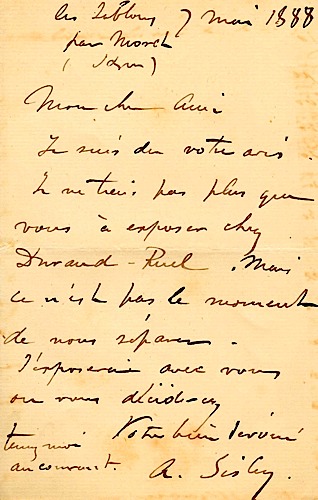 les Sablons 7 mai 1888
par Moret
(
Mon cher Ami
Je suis de votre avis.
Je ne tiens pas plus que
vous à exposer chez
Durand-Ruel. Mais
ce n'est pas le moment
de nous séparer.
J'exposerai avec vous
ou vous déciderez
Votre bien dévoué
tenez moi
au courant.
A. Sisley